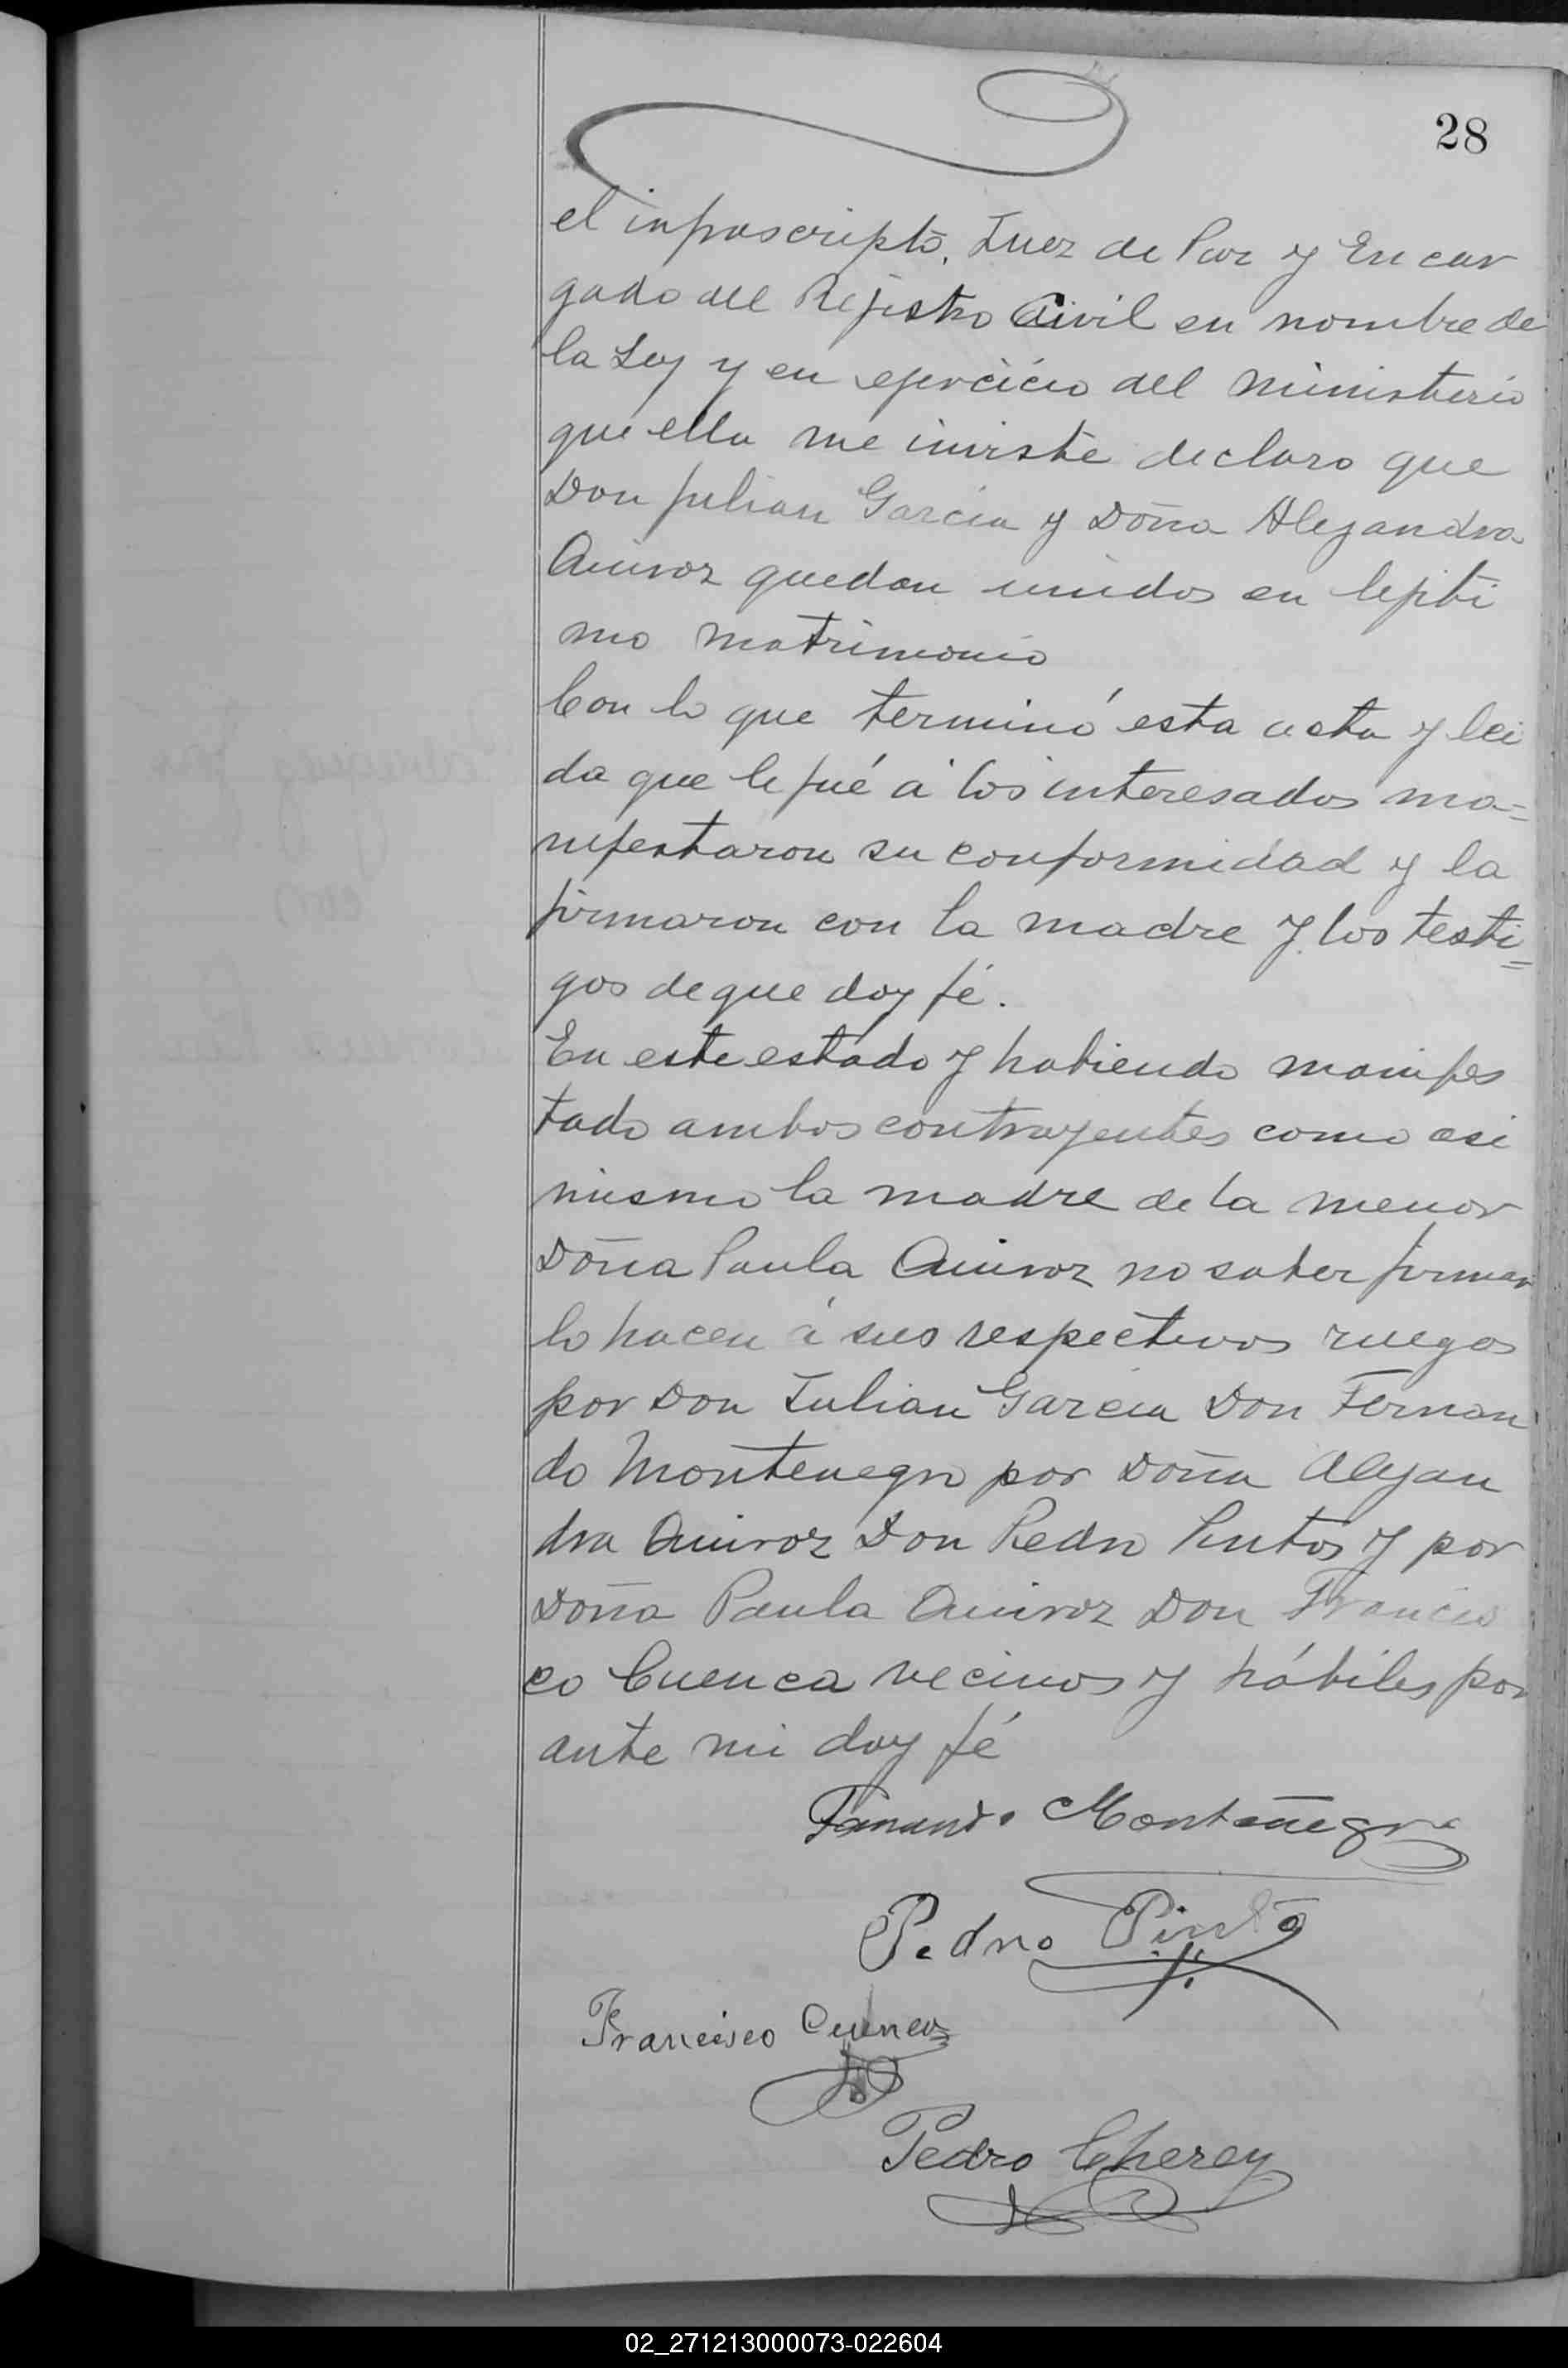 28
el infrascripto, Juez de Paz y Encar
gado del Rejistro Civil en nombre de
la Ley y en ejercicio del ministerio
que ella me inviste declaro que
Don Julian García y Doña Alejandra
Quiroz quedan unidos en lejiti
mo matrimonio
Con lo que terminó esta acta y lei
da que le fué á los interesados ma=
nifestaron su conformidad y la
firmaron con la madre y los testi=
gos de que doy fé.
En este estado y habiendo manifes
tado ambos contrayentes como asi
mismo la madre de la menor
Doña Paula Quiroz no saber firmar
lo hacen á sus respectivos ruegos
por Don Julian García Don Fernan
do Montenegro por Doña Alejan
dra Quiroz Don Pedro Pintos y por
Doña Paula Quiroz Don Francis
co Cuenca vecinos y hábiles por
ante mi doy fé
Fernando Montenegro
Pedro Pinto
Francisco Cuenca
Pedro Cherey
02_271213000073-022604